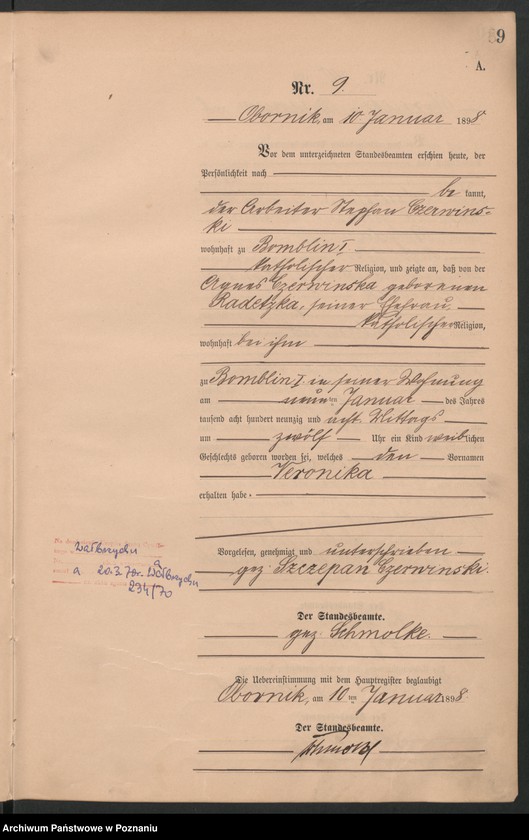 9
A.
Nr. 9.
Obornik, am 10 Januar 1898
Vor dem unterzeichneten Standesbeamten erschien heute, der
Persönlichkeit nach
be kannt,
der Arbeiter Stephan Czerwins-
ki
wohnhaft zu Bomblin I
katholischer Religion, und zeigte an, daß von der
Agnes Czerwinska geborenen
Radetzka, seiner Ehefrau
katholischer Religion,
wohnhaft bei ihm
zu Bomblin I in seiner Wohnung
am neunten Januar des Jahres
tausend acht hundert neunzig und acht Mittags
um zwölf Uhr ein Kind weiblichen
Geschlechts geboren worden sei, welches den Vornamen
Veronika
erhalten habe.
Vorgelesen, genehmigt und unterschrieben
gez. Szczepan Czerwinski.
Der Standesbeamte.
gez. Schmolke.
Die Uebereinstimmung mit dem Hauptregister beglaubigt
Obornik, am 10ten Januar 1898.
Der Standesbeamte.
Schmolke
Wałbrzychu
a 20.3.70r. Wałbrzychu
234/70
Archiwum Państwowe w Poznaniu